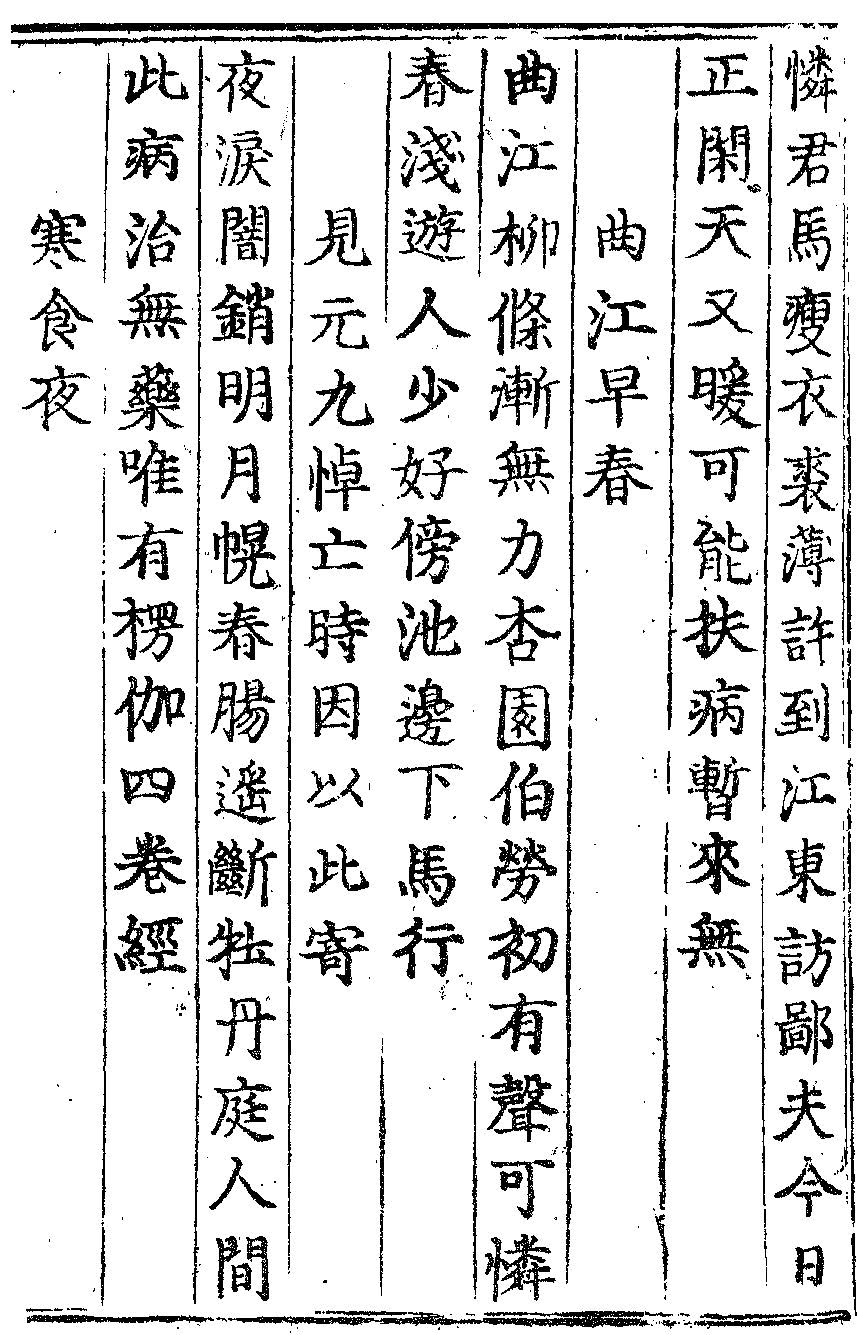 憐君馬瘦衣裘薄許到江東訪鄙夫今日
正閑天又暖可能扶病暫來無
曲江早春
曲江柳條漸無力杏園伯勞初有聲可憐
春淺遊人少好傍池邊下馬行
見元九悼亡時因以此寄
夜淚闇銷明月幌春腸遥斷牡丹庭人間
此病治無藥唯有楞伽四卷經
寒食夜